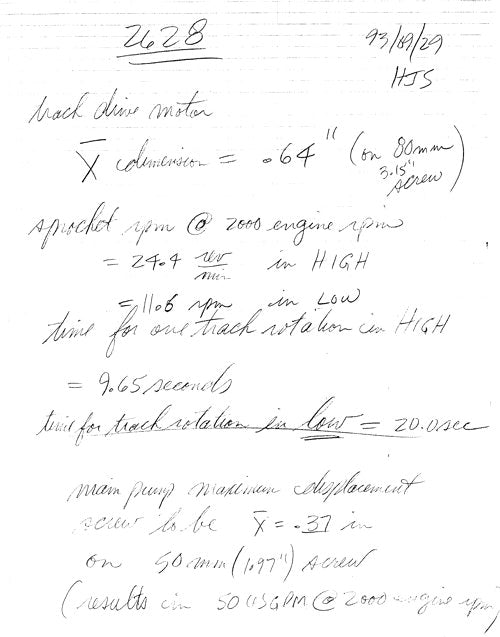 2628
93/09/29
HJS
track drive motor
X̄ dimension = .64" (on 80mm
3.15"
screw)
sprocket rpm @ 2000 engine rpm
= 24.4 rev/min in HIGH
= 11.6 rpm in LOW
time for one track rotation in HIGH
= 9.65 seconds
time for track rotation in low = 20.0 sec
main pump maximum displacement
screw to be X̄ = .37 in
on 50 mm (1.97") screw
(results in 50 USGPM @ 2000 engine rpm)